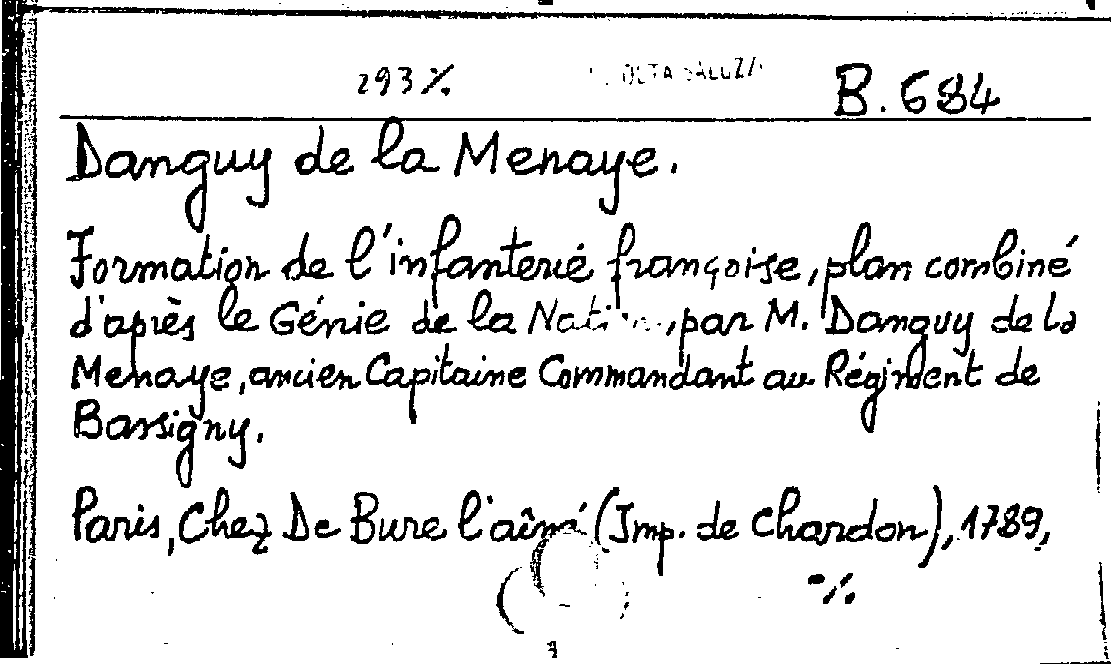 293 ⁒ B.684
Danguy de la Menaye.
Formation de l'infanterie françoise, plan combiné
d'après le Génie de la Nation, par M. Danguy de la
Menaye, ancien Capitaine Commandant au Régiment de
Bassigny.
Paris, Chez De Bure l'aîné (Imp. de Chardon), 1789,
⁒